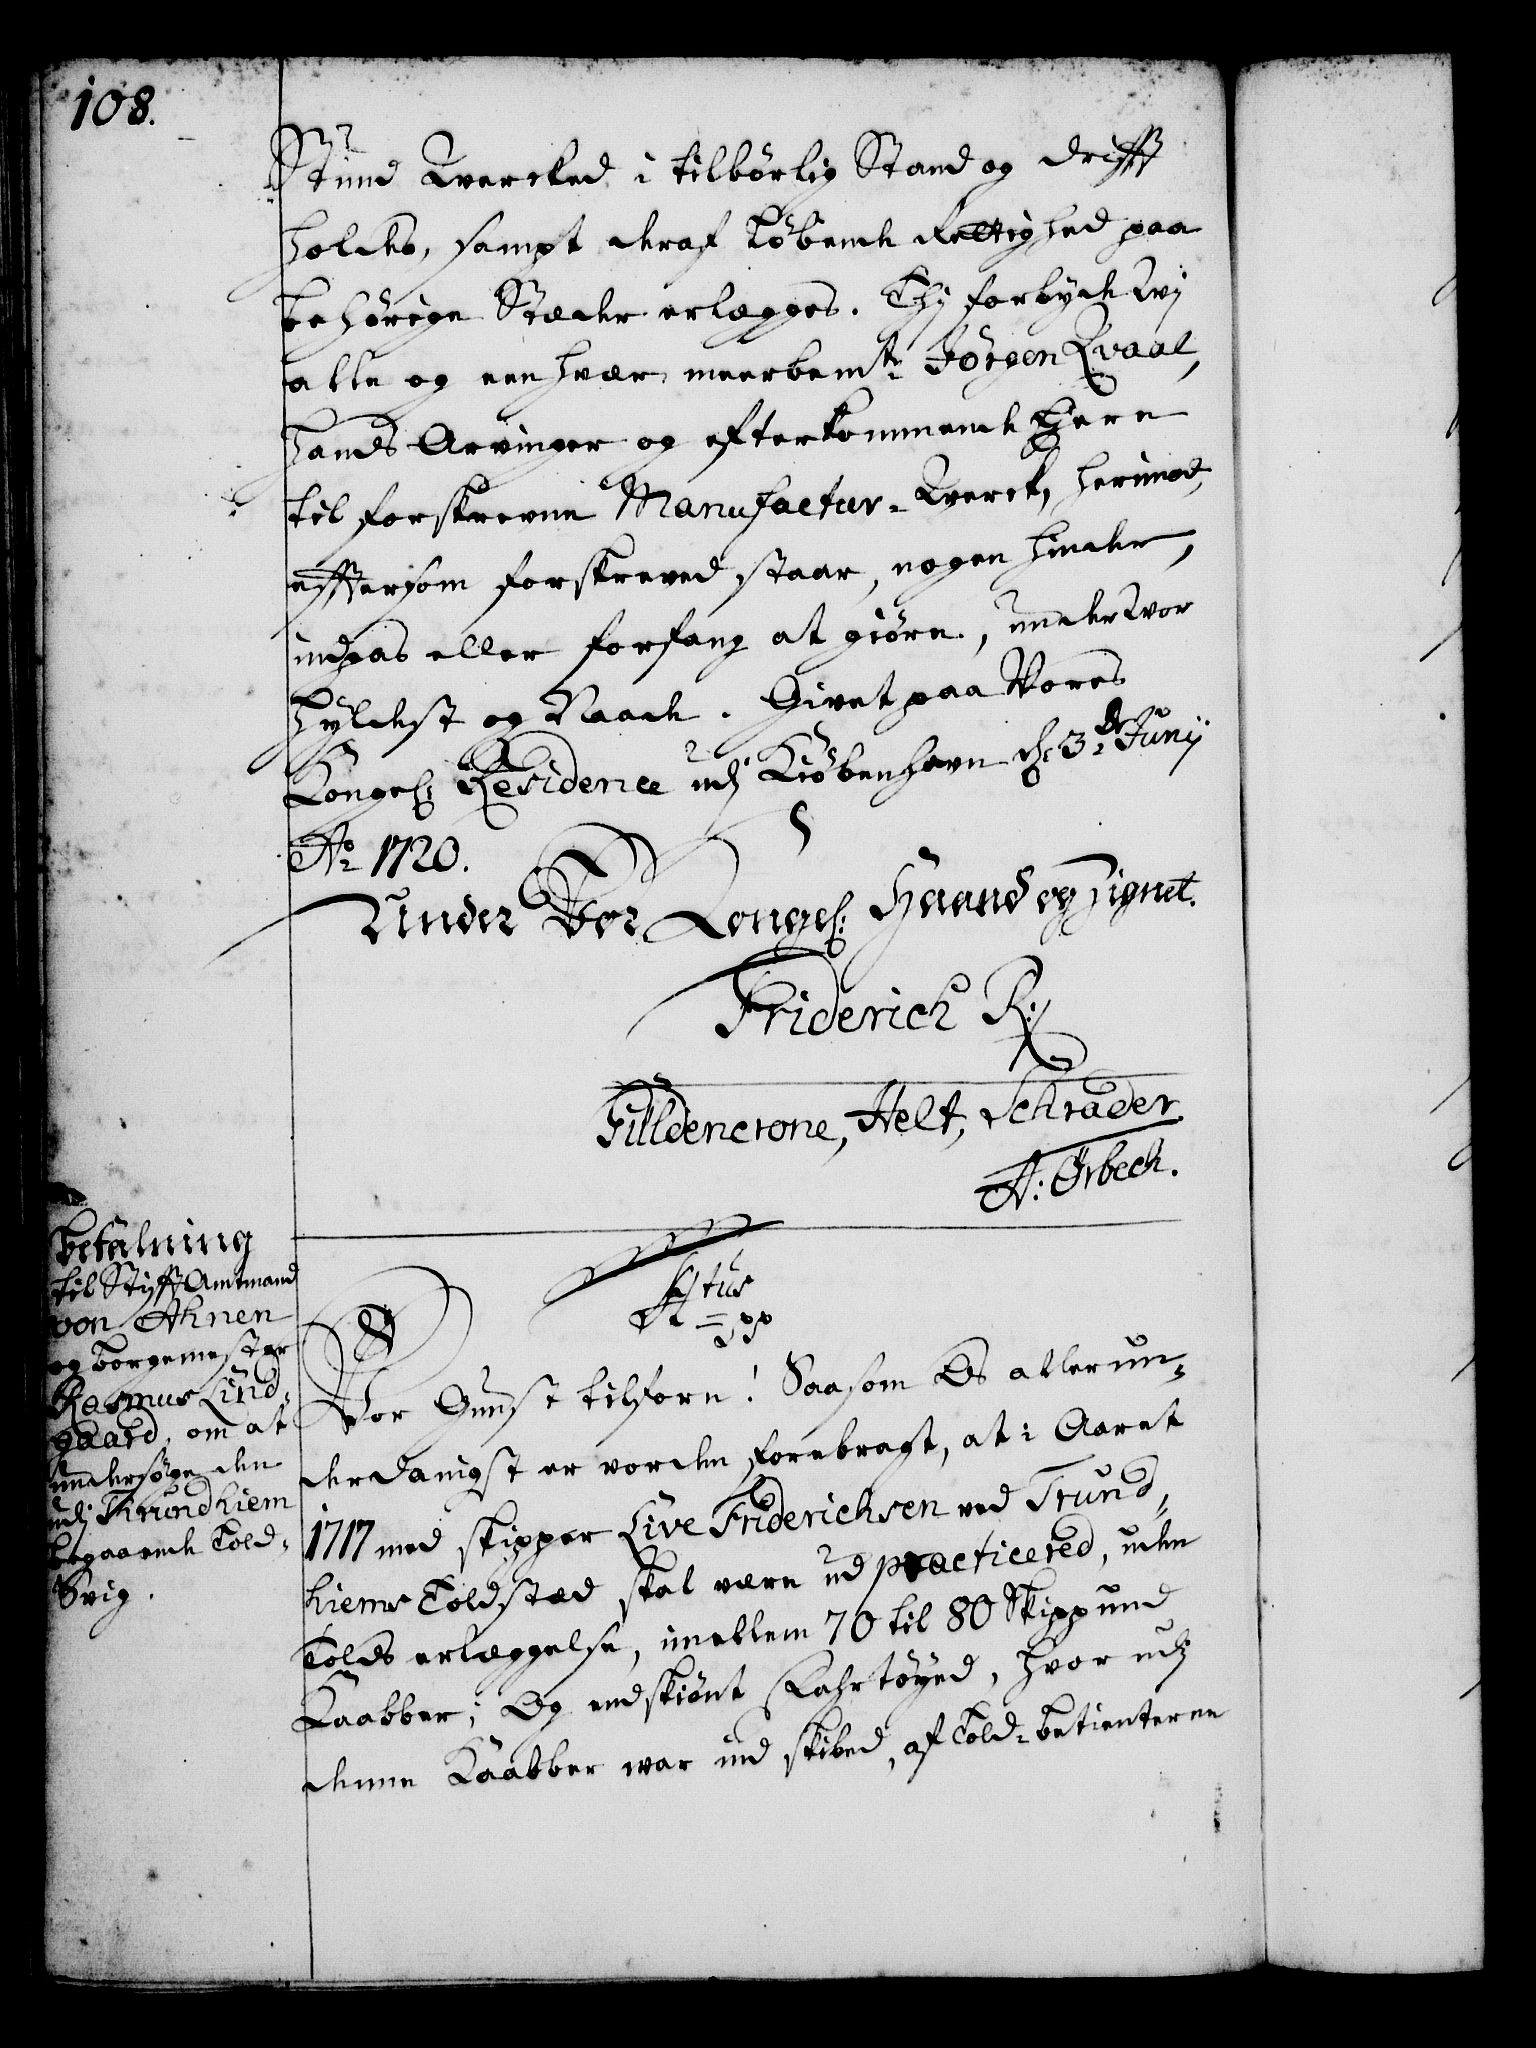 108.
Stund Wercked i tilbørlig Stand og drifft
holdes, sampt deraf løbende Rettighed paa
behørige Stæder erlægges. Thj forbyde Wj
alle og een hvær, meerbemte Jörgen Qvaal,
hands Arvinger og efterkommende Eyere
til forskrevne Manufactur-Werck, herimod,
efftersom forskreved staar, nogen hinder,
indpas eller forfang at giøre, under Wor
hyldest og Naade. Givet paa Vores
Kongel: Residence udj Kiöbenhavn d: 3de Junij
Ao 1720.
Under Vor Kongel: Haand og Signet.
Friderich R:
Gülldencrone, Helt, Schrader
A: Ørbech.
Betalning
til Stifft Amtmand
von Ahnen
og borgemester
Rasmus Lind-
gaard, om at
undersøge den
udj Trundhiem
begaaende Told-
Svig.
Titus
pp
Vor Gunst tilforn! Saasom Os allerun-
derdanigst er vorden forebragt, at i Aaret
1717 med skipper Live Friderichsen ved Trund-
hiems Toldsted skal være ud practicered, uden
Tolds erlæggelse, imellem 70 til 80 Skippund
Kaabber; Og endskiønt Fahrtøyed, hvor udj
denne Kaabber war ind skibed, af Told-betienterne